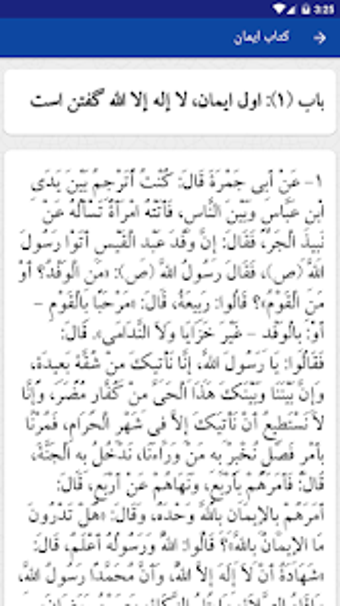 3:25
کتاب ایمان
باب (۱): اول ایمان، لا إله إلا الله گفتن است
۱- عَنْ أَبِي جَمْرَةَ قَالَ: كُنْتُ أُتَرْجِمُ بَيْنَ يَدَيِ
ابْنِ عَبَّاسٍ وَبَيْنَ النَّاسِ، فَأَتَتْهُ امْرَأَةٌ تَسْأَلُهُ عَنْ
نَبِيذِ الْجَرِّ، فَقَالَ: إِنَّ وَفْدَ عَبْدِ الْقَيْسِ أَتَوْا رَسُولَ
اللَّهِ (ص)، فَقَالَ رَسُولُ اللَّهِ (ص): «مَنِ الْوَفْدُ؟ أَوْ
مَنِ الْقَوْمُ»؟ قَالُوا: رَبِيعَةُ، قَالَ: «مَرْحَبًا بِالْقَوْمِ –
أَوْ: بِالْوَفْدِ – غَيْرَ خَزَايَا وَلَا النَّدَامَى». قَالَ:
فَقَالُوا: يَا رَسُولَ اللَّهِ، إِنَّا نَأْتِيكَ مِنْ شُقَّةٍ بَعِيدَةٍ،
وَإِنَّ بَيْنَنَا وَبَيْنَكَ هَذَا الْحَيَّ مِنْ كُفَّارِ مُضَرَ، وَإِنَّا
لَا نَسْتَطِيعُ أَنْ نَأْتِيَكَ إِلَّا فِي شَهْرِ الْحَرَامِ، فَمُرْنَا
بِأَمْرٍ فَصْلٍ نُخْبِرْ بِهِ مَنْ وَرَاءَنَا، نَدْخُلُ بِهِ الْجَنَّةَ،
قَالَ: فَأَمَرَهُمْ بِأَرْبَعٍ، وَنَهَاهُمْ عَنْ أَرْبَعٍ، قَالَ:
أَمَرَهُمْ بِالْإِيمَانِ بِاللَّهِ وَحْدَهُ، وَقَالَ: «هَلْ تَدْرُونَ
مَا الْإِيمَانُ بِاللَّهِ»؟ قَالُوا: اللَّهُ وَرَسُولُهُ أَعْلَمُ، قَالَ:
«شَهَادَةُ أَنْ لَا إِلَهَ إِلَّا اللَّهُ، وَأَنَّ مُحَمَّدًا رَسُولُ اللَّهِ،